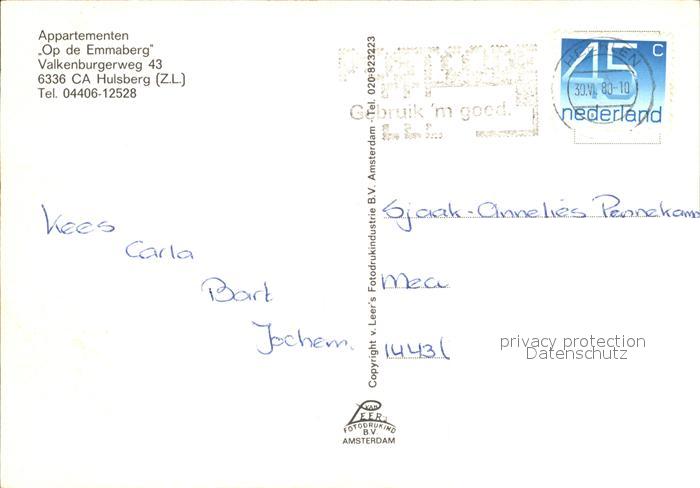 Appartementen
„Op de Emmaberg"
Valkenburgerweg 43
6336 CA Hulsberg (Z.L.)
Tel. 04406-12528
Gebruik 'm goed.
45 c
30.VI. 80-10
nederland
Copyright v. Leer's Fotodrukindustrie B.V. Amsterdam - Tel. 020-823223
Kees
Carla
Bart
Jochem.
Sjaak-Annelies Pennekam
1443
privacy protection
Datenschutz
VAN
LEER
FOTODRUKIND
B.V.
AMSTERDAM